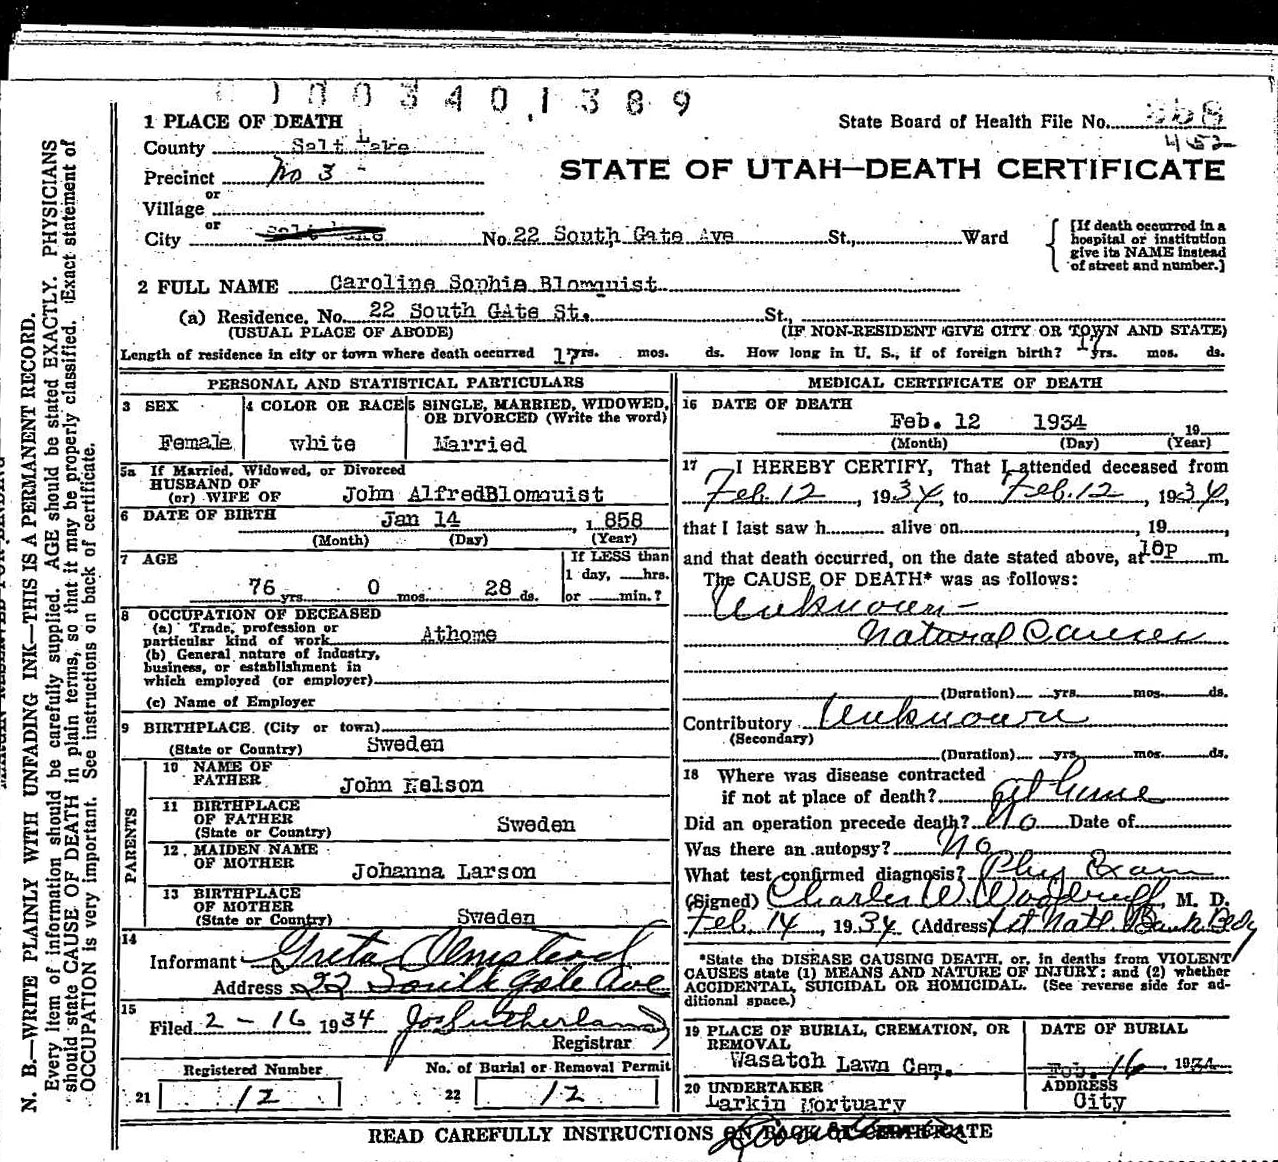 0003401389
1 PLACE OF DEATH
State Board of Health File No. 358
452
County Salt Lake
Precinct No 3
STATE OF UTAH—DEATH CERTIFICATE
or
Village
or
City Salt Lake No. 22 South Gate Ave St., Ward
[If death occurred in a hospital or institution give its NAME instead of street and number.]
2 FULL NAME Caroline Sophia Blomquist
(a) Residence, No. 22 South GAte St. St.,
(USUAL PLACE OF ABODE) (IF NON-RESIDENT GIVE CITY OR TOWN AND STATE)
Length of residence in city or town where death occurred 17 yrs. mos. ds. How long in U. S., if of foreign birth? 17 yrs. mos. ds.
PERSONAL AND STATISTICAL PARTICULARS
3 SEX
Female
4 COLOR OR RACE
white
5 SINGLE, MARRIED, WIDOWED, OR DIVORCED (Write the word)
Married
5a If Married, Widowed, or Divorced
HUSBAND OF
(or) WIFE OF John AlfredBlomquist
6 DATE OF BIRTH Jan 14, 1858
(Month) (Day) (Year)
7 AGE
76 yrs. 0 mos. 28 ds.
If LESS than
1 day, hrs.
or min.?
8 OCCUPATION OF DECEASED
(a) Trade, profession or
particular kind of work Athome
(b) General nature of Industry,
business, or establishment in
which employed (or employer)
(c) Name of Employer
9 BIRTHPLACE (City or town)
(State or Country) Sweden
PARENTS
10 NAME OF
FATHER John Nelson
11 BIRTHPLACE
OF FATHER
(State or Country) Sweden
12 MAIDEN NAME
OF MOTHER Johanna Larson
13 BIRTHPLACE
OF MOTHER
(State or Country) Sweden
14
Informant Greta Olmstead
Address 22 South Gate Ave
15
Filed 2-16 1934 Jos Sutherland
Registrar
Registered Number
21 12
No. of Burial or Removal Permit
22 12
MEDICAL CERTIFICATE OF DEATH
16 DATE OF DEATH
Feb. 12 1934 19
(Month) (Day) (Year)
17 I HEREBY CERTIFY, That I attended deceased from
Feb. 12, 1934, to Feb. 12, 1934,
that I last saw h alive on , 19
and that death occurred, on the date stated above, at 10p m.
The CAUSE OF DEATH* was as follows:
Unknown-
Natural Causes
(Duration) yrs. mos. ds.
Contributory Unknown
(Secondary)
(Duration) yrs. mos. ds.
18 Where was disease contracted
if not at place of death? at home
Did an operation precede death? No Date of
Was there an autopsy? No
What test confirmed diagnosis? Phys Exam
(Signed) Charles W Woodruff, M. D.
Feb. 14, 1934 (Address) 1st Natl. Bank Bldg
*State the DISEASE CAUSING DEATH, or, in deaths from VIOLENT
CAUSES state (1) MEANS AND NATURE OF INJURY; and (2) whether
ACCIDENTAL, SUICIDAL OR HOMICIDAL. (See reverse side for ad-
ditional space.)
19 PLACE OF BURIAL, CREMATION, OR
REMOVAL
Wasatch Lawn Cem.
DATE OF BURIAL
Feb. 16, 1934
20 UNDERTAKER
Larkin Mortuary
ADDRESS
City
READ CAREFULLY INSTRUCTIONS ON BACK OF CERTIFICATE
N. B.—WRITE PLAINLY WITH UNFADING INK—THIS IS A PERMANENT RECORD.
Every item of information should be carefully supplied. AGE should be stated EXACTLY. PHYSICIANS
should state CAUSE OF DEATH in plain terms, so that it may be properly classified. Exact statement of
OCCUPATION is very important. See instructions on back of certificate.